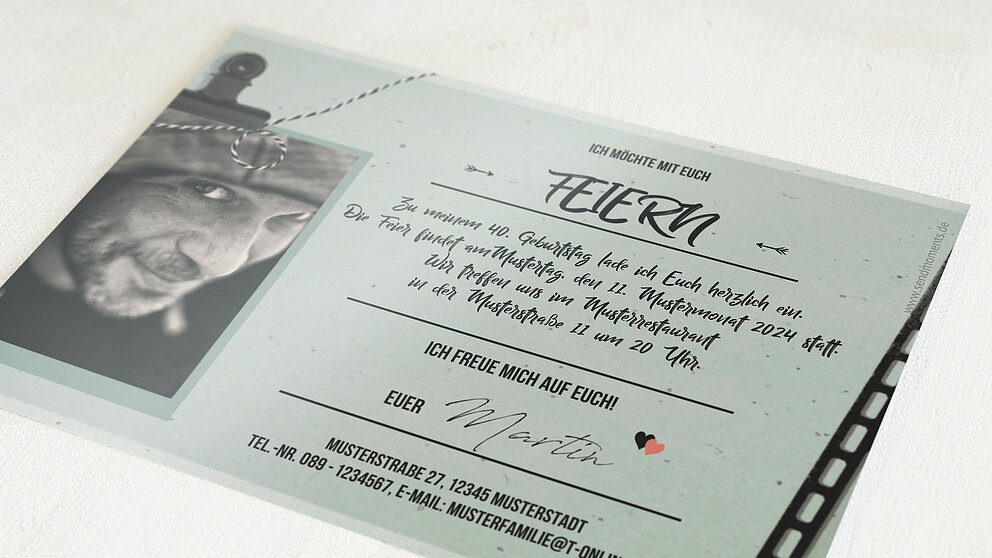 ICH MÖCHTE MIT EUCH
FEIERN
Zu meinem 40. Geburtstag lade ich Euch herzlich ein.
Die Feier findet am Mustertag, den 11. Mustermonat 2024 statt.
Wir treffen uns im Musterrestaurant
in der Musterstraße 11 um 20 Uhr.
ICH FREUE MICH AUF EUCH!
EUER Martin
MUSTERSTRAßE 27, 12345 MUSTERSTADT
TEL.-NR. 089 - 1234567, E-MAIL: MUSTERFAMILIE@T-ONLIN
www.sendmoments.de